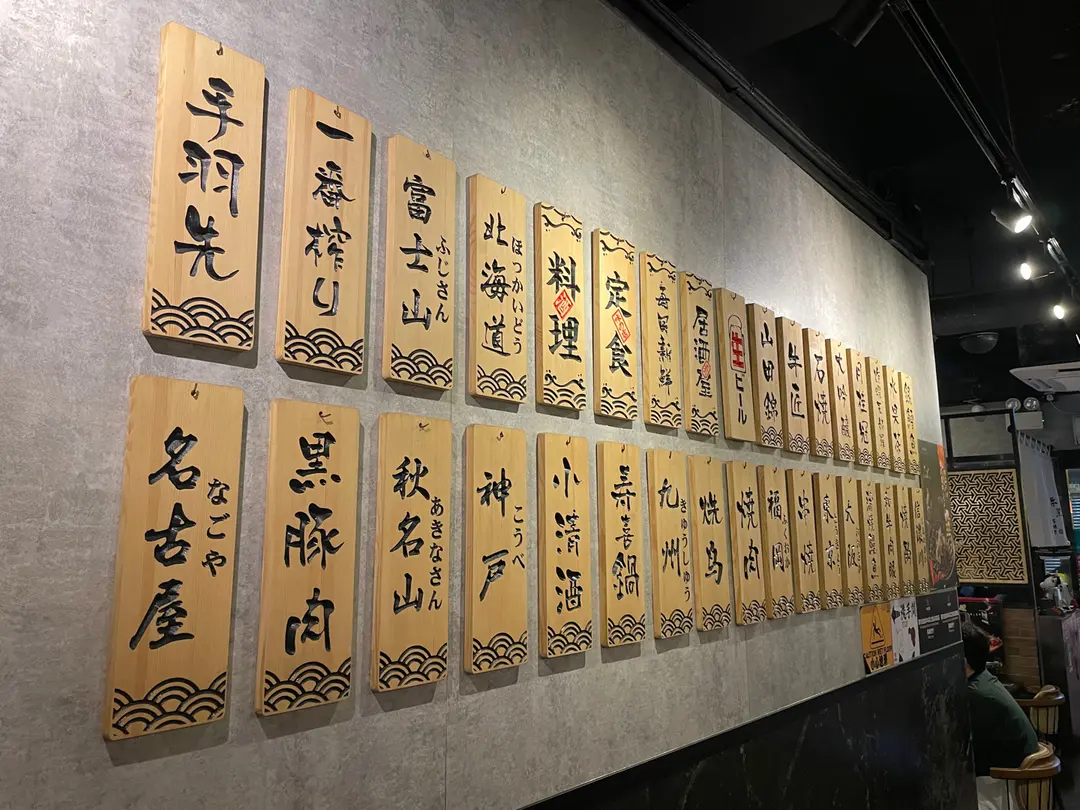 手羽先
一番搾り
富士山
ふじさん
北海道
ほっかいどう
料理
定食
毎日新鮮
居酒屋
生ビール
山田錦
牛匠
石焼
大吟醸
名古屋
なごや
黒豚肉
秋名山
あきなさん
神戸
こうべ
小清酒
寿喜鍋
九州
きゅうしゅう
焼鸟
焼肉
福岡
串焼
東京
大阪
CAUTION WET FLOOR
小心地滑